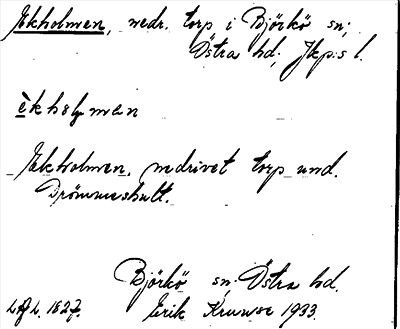 Ekholmen, nedr. torp i Björkö sn;
Östra hd; Jkp:s l.
èkhɷlmen
Ekholmen, nedrivet torp und.
Drömmeshult.
Björkö sn. Östra hd.
Erik Kruuse 1933.